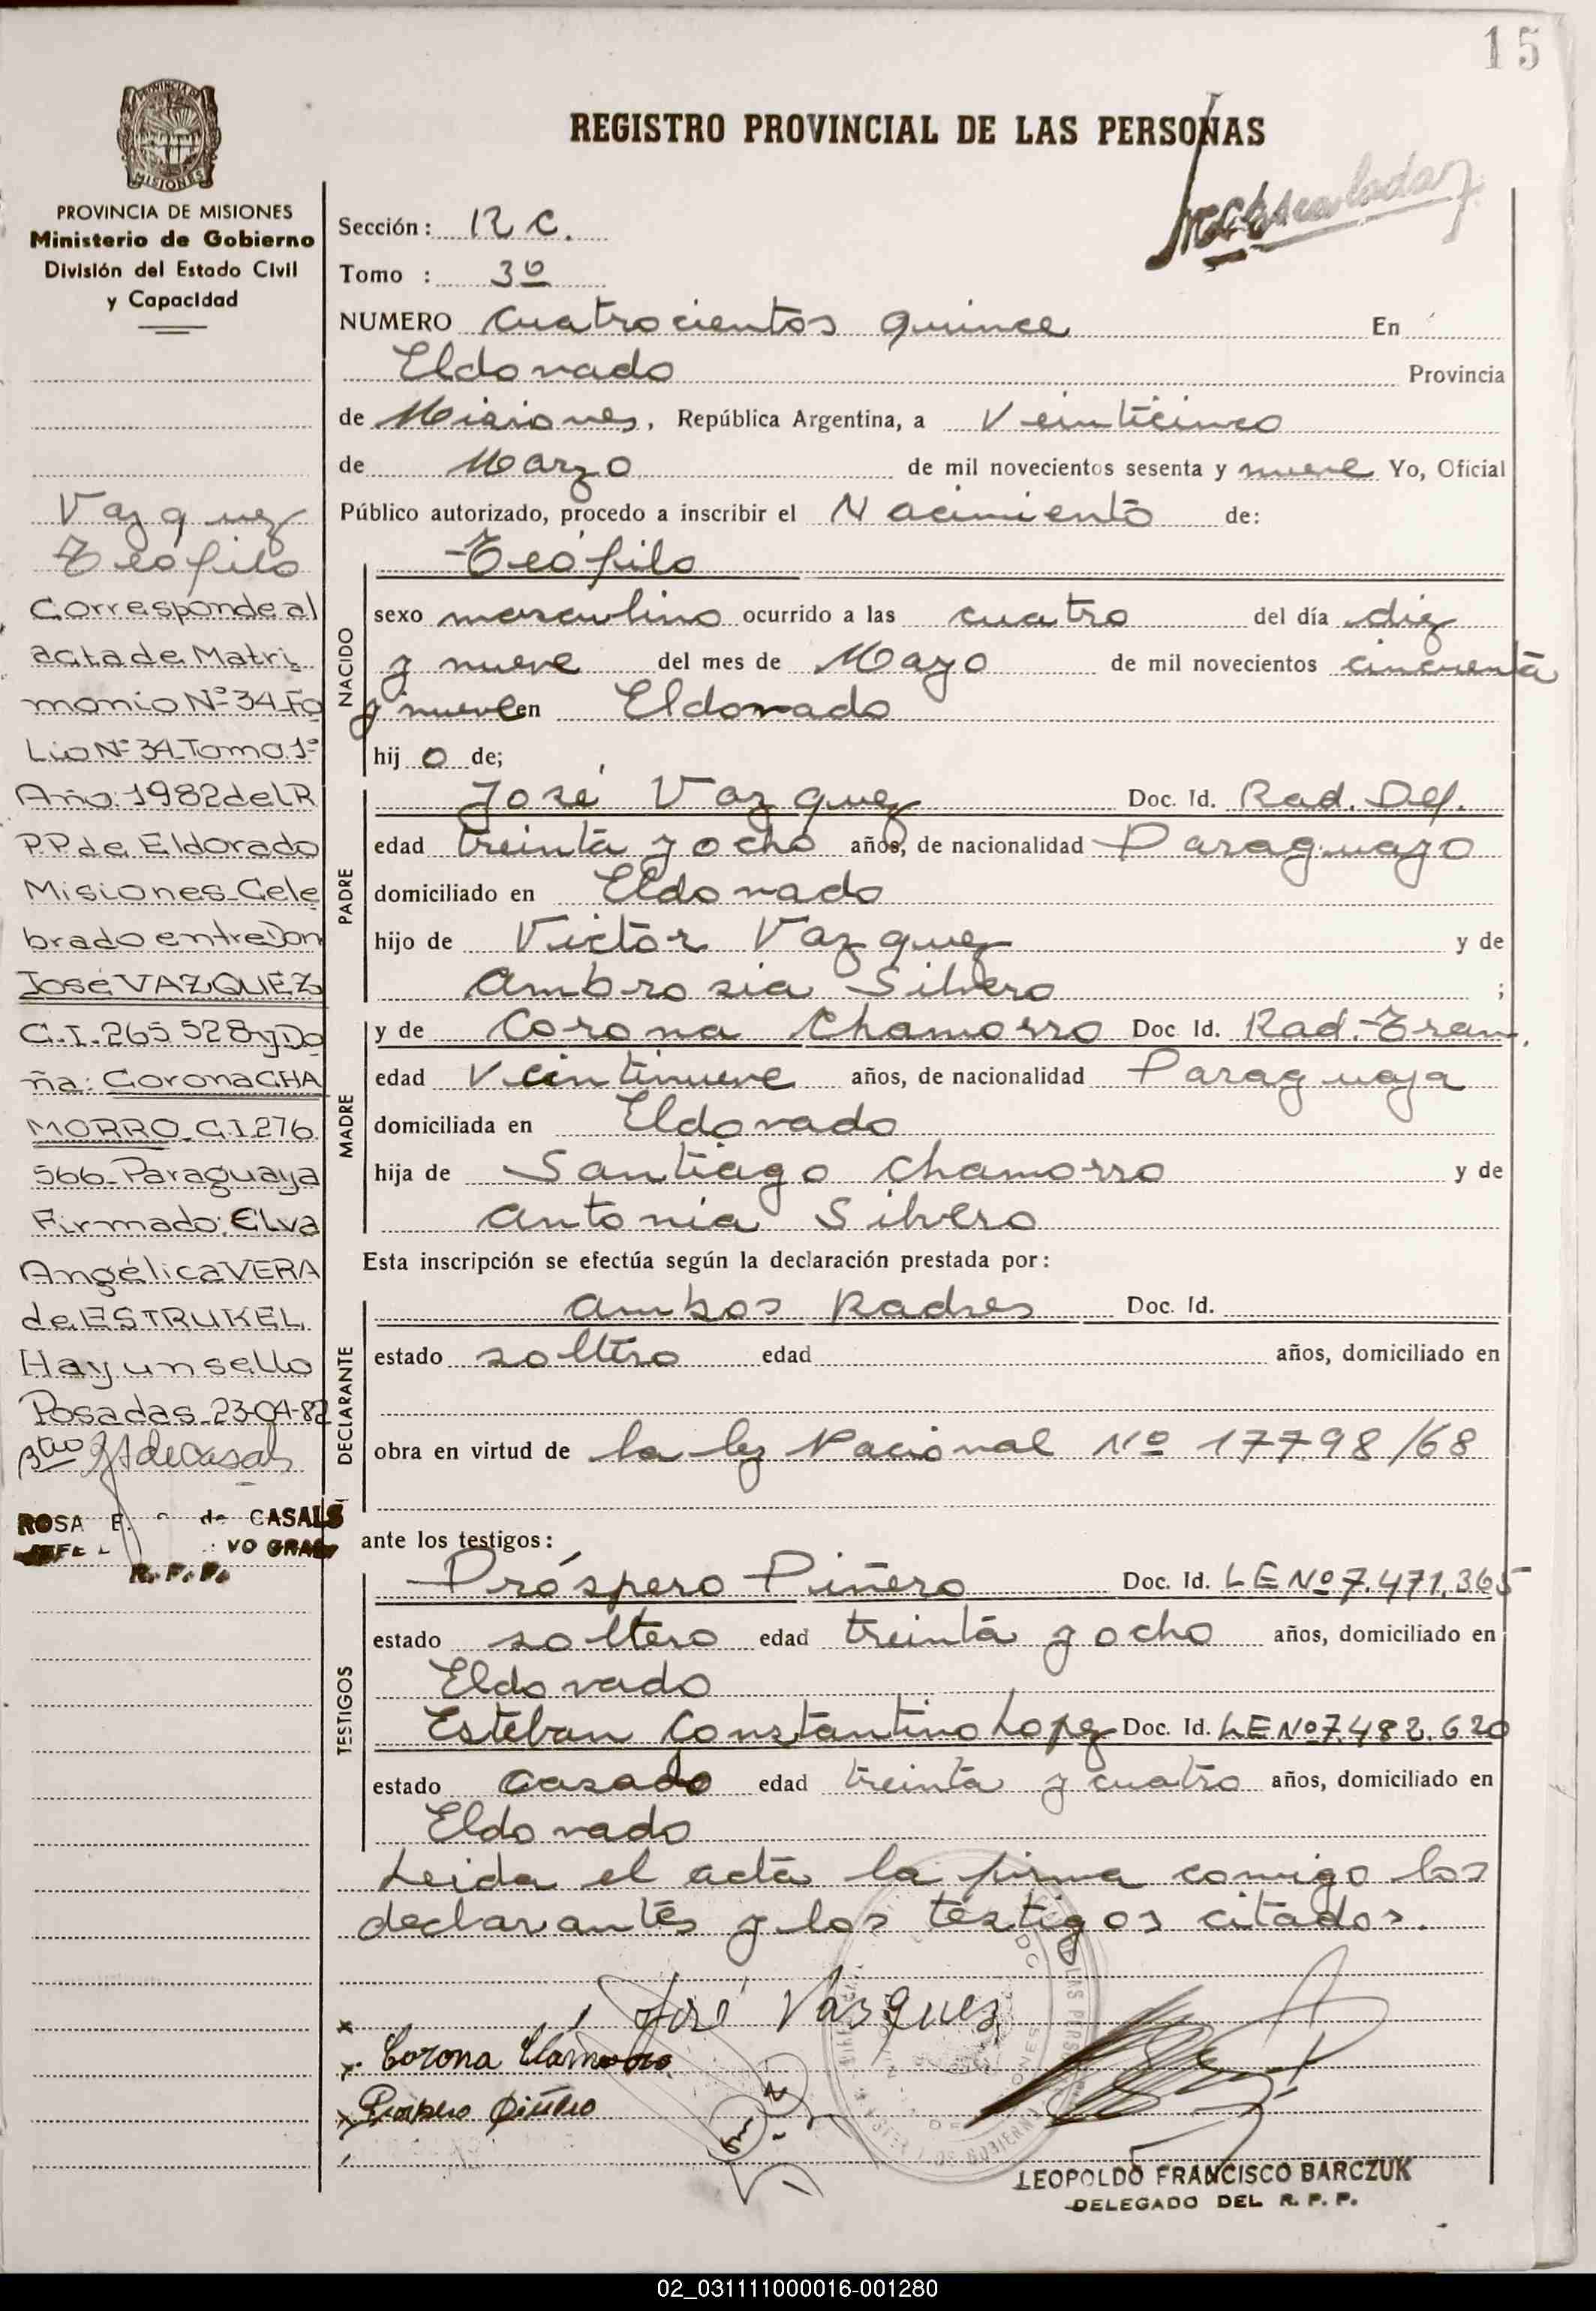 15
REGISTRO PROVINCIAL DE LAS PERSONAS
PROVINCIA DE MISIONES
Ministerio de Gobierno
División del Estado Civil
y Capacidad
Sección: R C.
Tomo : 3º
NUMERO cuatrocientos quince En
Eldorado Provincia
de Misiones, República Argentina, a Veinticinco
de Marzo de mil novecientos sesenta y nueve Yo, Oficial
Público autorizado, procedo a inscribir el Nacimiento de:
Teófilo
NACIDO
sexo masculino ocurrido a las cuatro del día diez
y nueve del mes de Mayo de mil novecientos cincuenta
y nueve en Eldorado
hij o de;
PADRE
José Vazquez Doc. Id. Rad. Def.
edad treinta y ocho años, de nacionalidad Paraguayo
domiciliado en Eldorado
hijo de Victor Vazquez y de
Ambrosia Silvero ;
MADRE
y de Corona Chamorro Doc Id. Rad. Tram.
edad Veintinueve años, de nacionalidad Paraguaya
domiciliada en Eldorado
hija de Santiago Chamorro y de
Antonia Silvero
Esta inscripción se efectúa según la declaración prestada por:
DECLARANTE
Ambos Padres Doc. Id.
estado soltero edad años, domiciliado en
obra en virtud de la ley Nacional Nº 17798/68
ante los testigos:
TESTIGOS
Próspero Piñero Doc. Id. LE Nº 7.471.365
estado soltero edad treinta y ocho años, domiciliado en
Eldorado
Esteban Constantino Lopez Doc. Id. LE Nº 7.482.620
estado casado edad treinta y cuatro años, domiciliado en
Eldorado
Leida el acta la firma comigo los
declarantes y los testigos citados.
José Vasquez
Corona Chamorro
Prospero Piñero
LEOPOLDO FRANCISCO BARCZUK
DELEGADO DEL R. P. P.
Vazquez
Teófilo
Corresponde al
acta de Matri
monio Nº 34 Fo
Lio Nº 34 Tomo 1º
Año: 1982 del R
P.P. de Eldorado
Misiones. Cele
brado entre Don
José VAZQUEZ
C.I. 265 528 y Do
ña: Corona CHA
MORRO. C.I. 276.
566. Paraguaya
Firmado: Elva
Angélica VERA
de ESTRUKEL
Hay un sello
Posadas. 23-04-82
de Casals
ROSA E. de CASALS
JEFE VO GRAL
R. P. P.
02_031111000016-001280